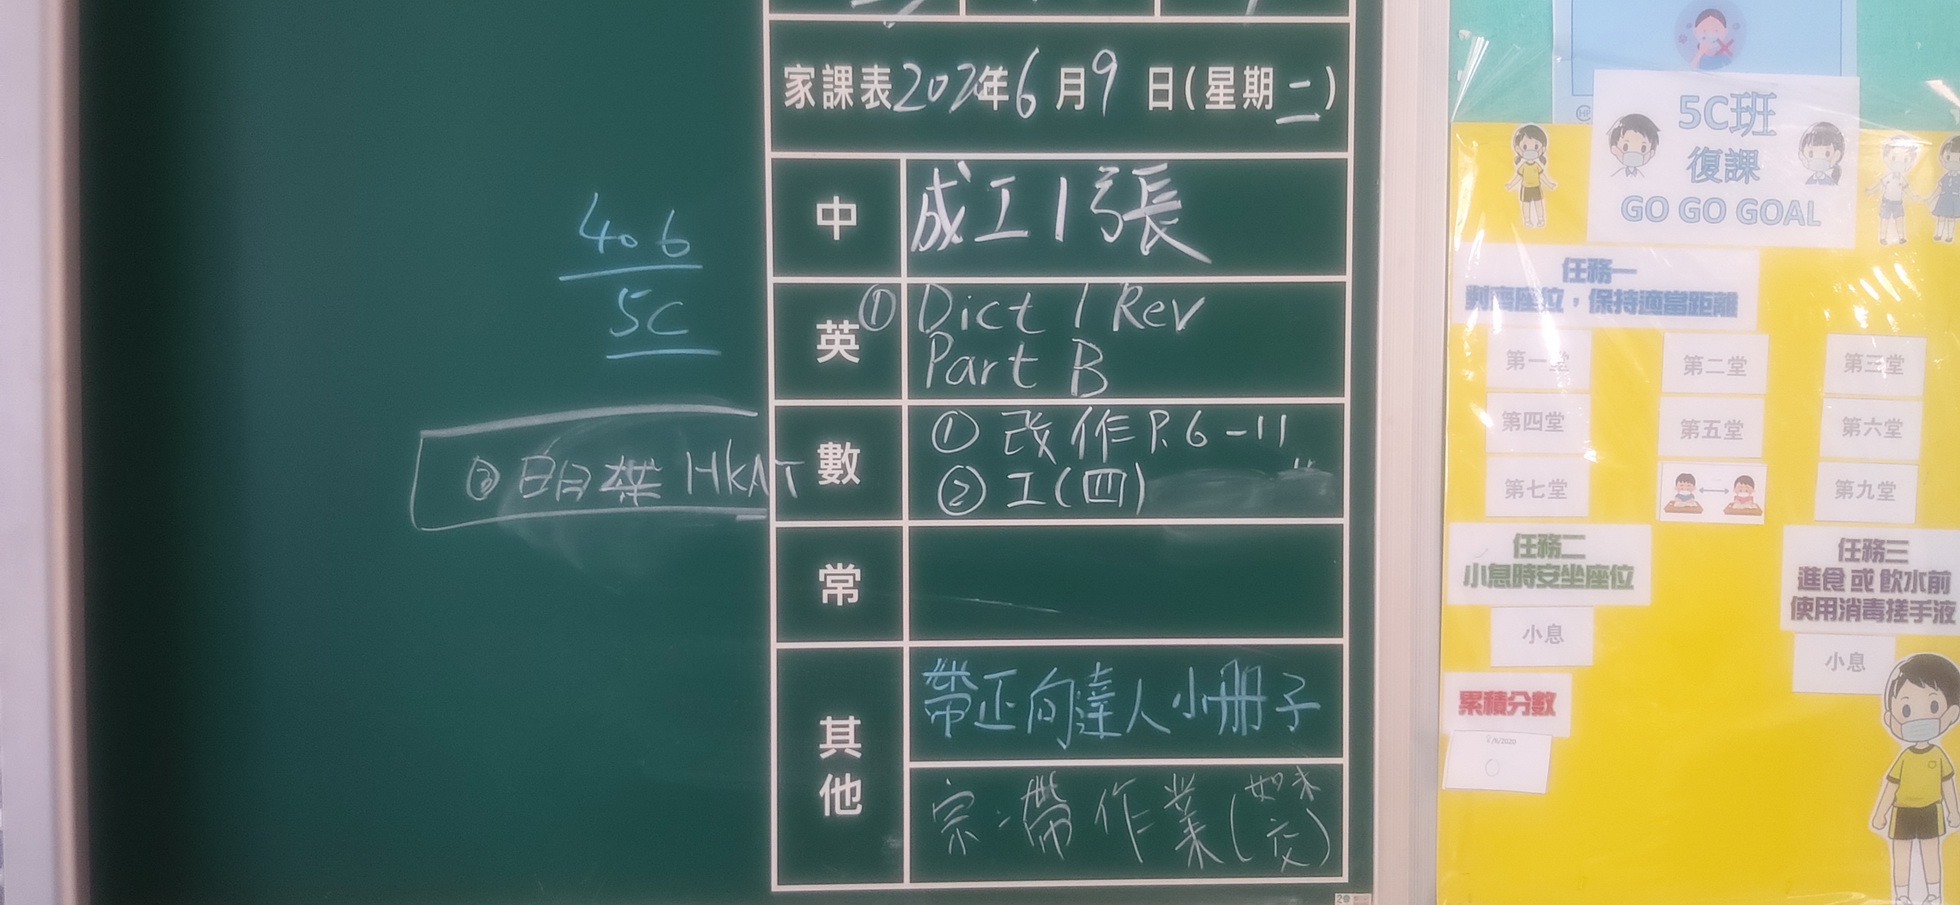 家課表2020年6月9日(星期二)
中
成工1張
406
5C
英
① Dict 1 Rev
Part B
數
① 改作P.6-11
② 工(四)
HKAT
常
其他
帶正向達人小冊子
宗:帶作業(如未交)
5C班
復課
GO GO GOAL
任務一
對齊座位，保持適當距離
第一堂
第二堂
第三堂
第四堂
第五堂
第六堂
第七堂
第九堂
任務二
小息時安坐座位
小息
任務三
進食或飲水前
使用消毒搓手液
小息
累積分數